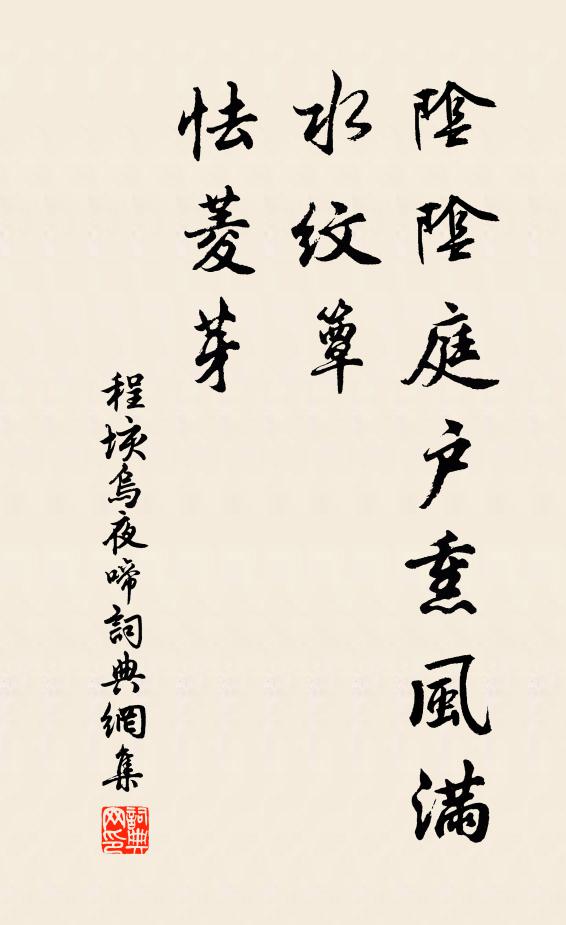 陰陰庭户熏風滿
水紋簟
怯菱芽
程垓烏夜啼詞典網集
詞典网印